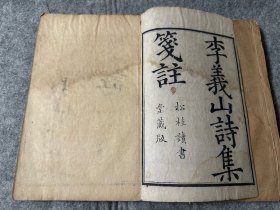 李義山詩集
箋註
松桂讀書
堂藏版